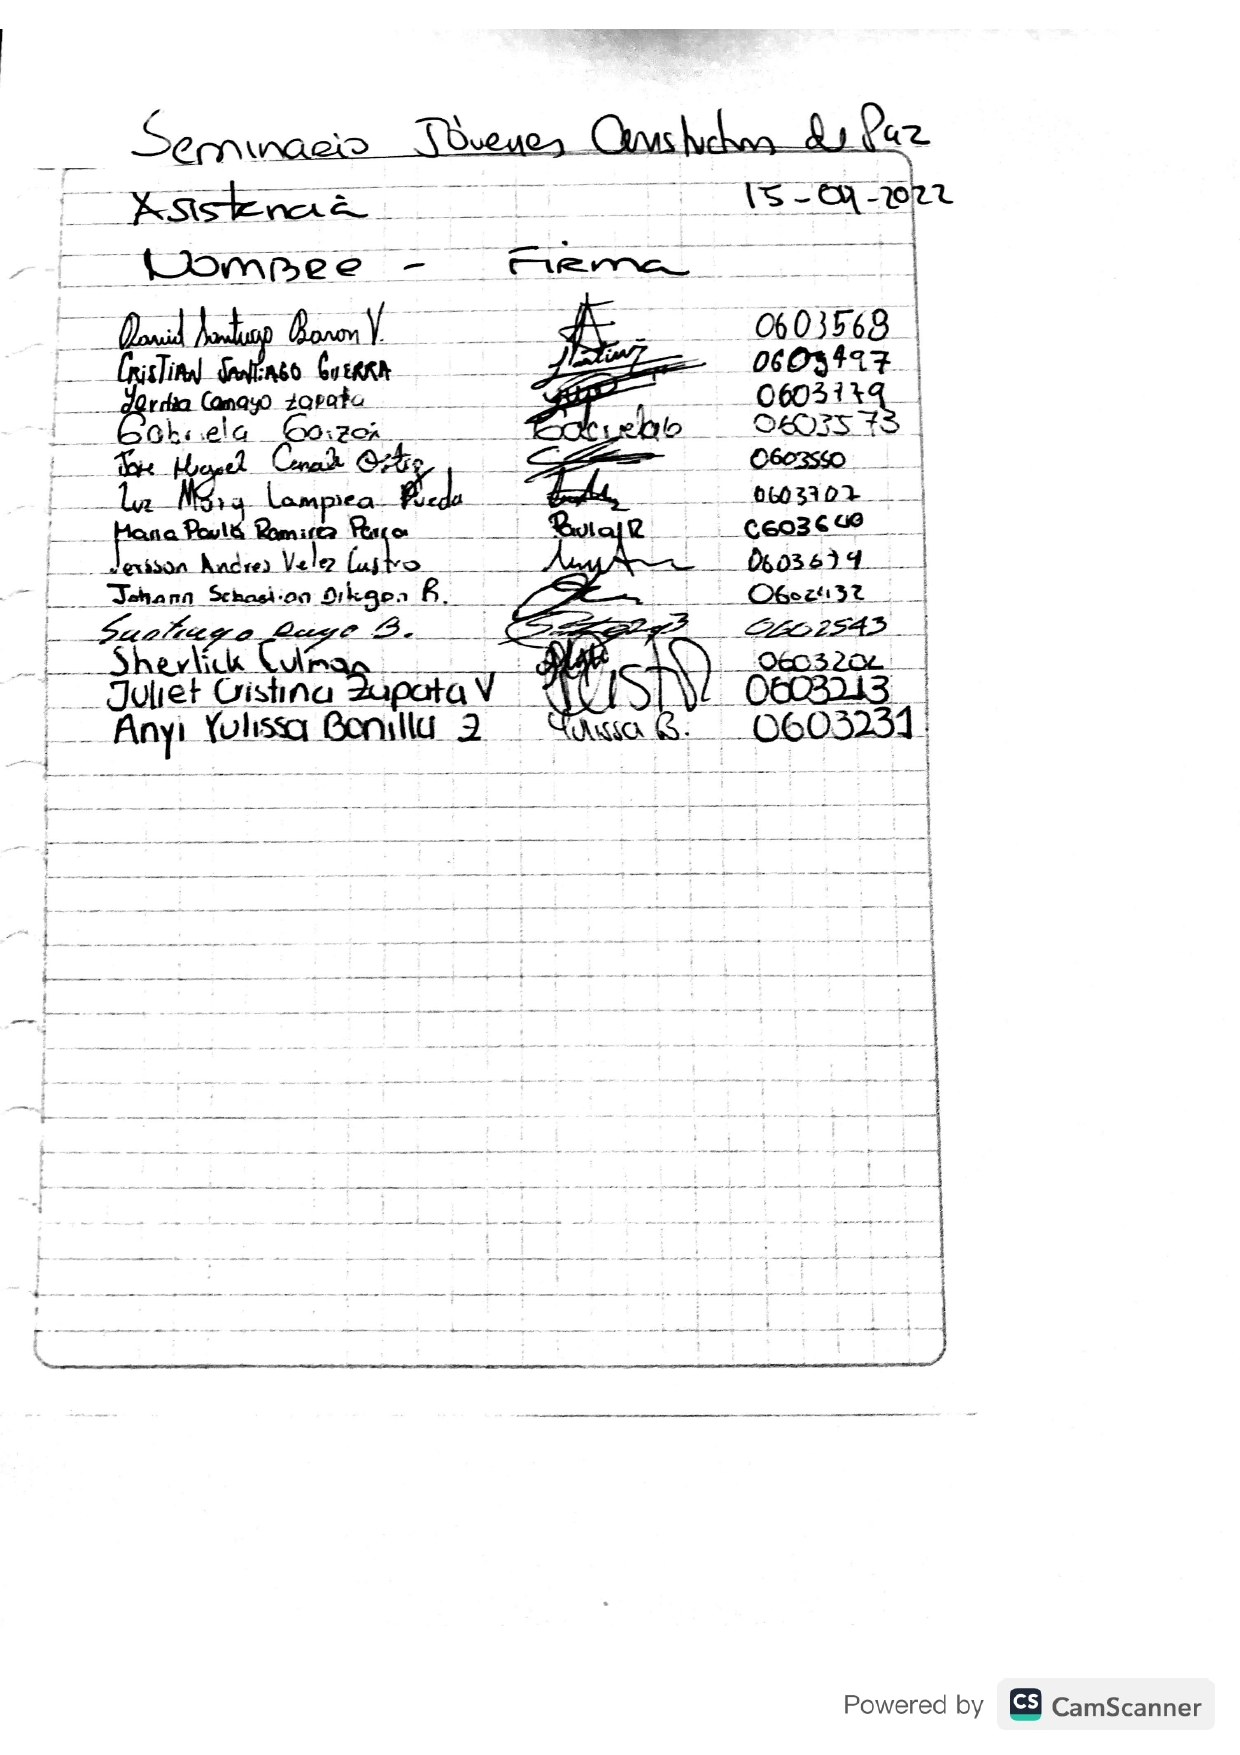 Seminario Jóvenes Constructores de Paz
Asistencia 15-09-2022
Nombre - Firma
Daniel Santiago Baron V. 0603568
CRISTIAN SANTIAGO GUERRA 0603497
Camayo zapata 0603779
Gabriela Garzón Gabriela 0603573
Jose Miguel Ortiz 0603550
Luz Mary Lamprea Rueda 0603702
Maria Paula Ramirez Paula R 0603640
Jersson Andres Velez Castro 0603679
Johann Sebastian R. 0602432
Santiago B. 0602543
Sherlick Culman 0603202
Juliet Cristina Zapata V 0603213
Anyi Yulissa Bonilla Z Yulissa B. 0603231
Powered by CS CamScanner